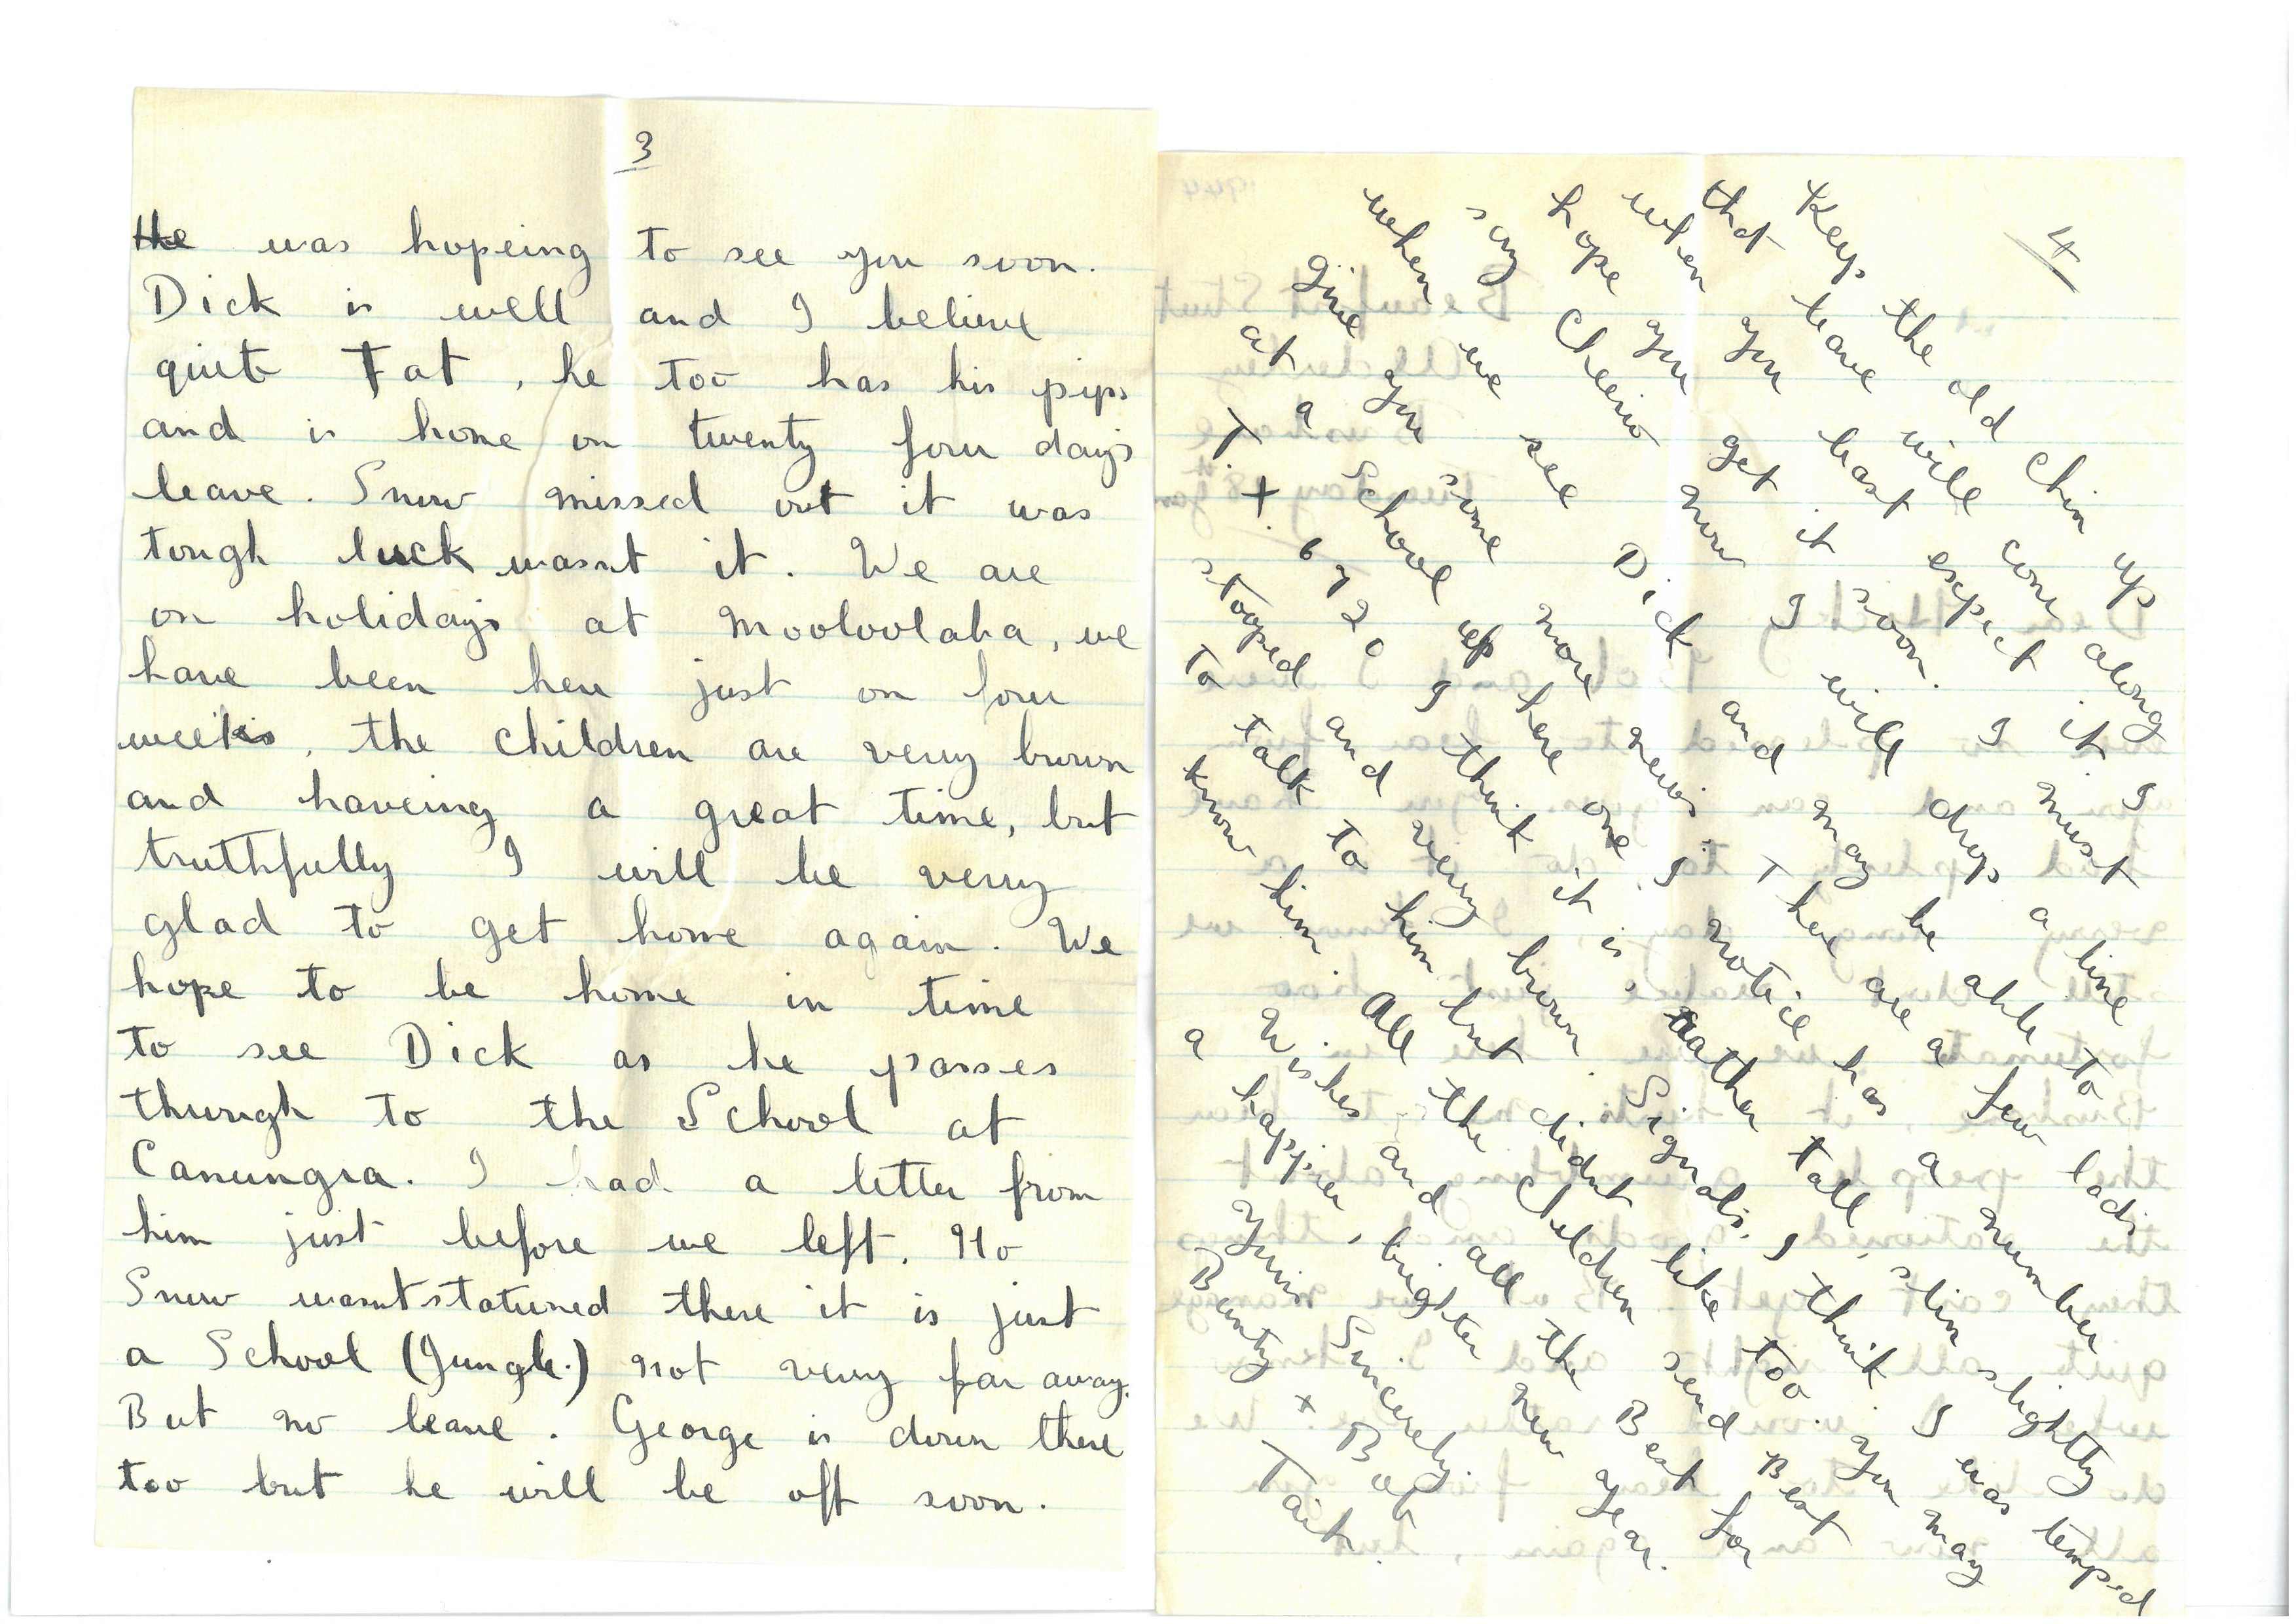 3
He was hopeing to see you soon.
Dick is well and I believe
quite fat, he too has his pips
and is home on twenty four days
leave. Snow missed out it was
tough luck wasnt it. We are
on holidays at Mooloolaba, we
have been here just on four
weeks, the children are very brown
and haveing a great time, but
truthfully I will be very
glad to get home again. We
hope to be home in time
to see Dick as he passes
through to the School at
Canungra. I had a letter from
him just before we left. No
Snow wasnt stationed there it is just
a School (Jungle.) not very far away.
But no leave. George is down there
too but he will be off soon.
4
Keep the old chin up
that leave will come along
when you least expect it I
hope you get it soon. I must
say Cheerio now I will drop a line
when we see Dick and may be able to
give you some more news. There are a few lads
at a School up here one I notice has a number
T.X. 6720 I think it is rather tall, slim slightly
stooped and very brown. Signals, I think I was temped
to talk to him but didnt like too. You may
know him. All the children send Best
Wishes and all the Best for
a happier, brighter new year.
Yours Sincerely.
Bunty + Bob
Tait.